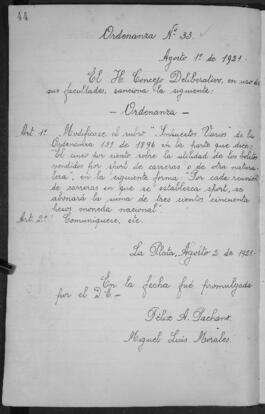 44
Ordenanza Nº 33
Agosto 1º de 1921.
El H. Concejo Deliberativo, en uso de
sus facultades, sanciona la siguiente:
- Ordenanza -
Art. 1º Modifícase el rubro "Impuestos Varios" de la
Ordenanza 131 de 1896 en la parte que dice:
"El cinco por ciento sobre la utilidad de los boletos
vendidos por sport de carreras o de otra natura-
leza", en la siguiente forma: "Por cada reunión
de carreras en que se establezca sport, se
abonará la suma de tres cientos cincuenta
pesos moneda nacional".
Art. 2º Comuníquese, etc.
La Plata, Agosto 2 de 1921.
En la fecha fué promulgada
por el D. E.-
Félix A.
Miguel Luis Morales.